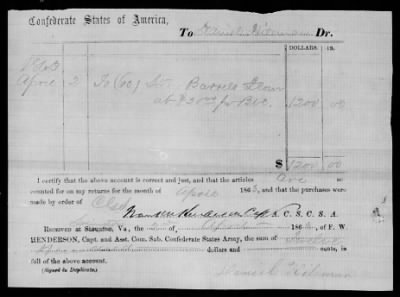 Confederate States of America,
To Daniel Dr.
DOLLARS. CTS.
1863
April 2 To (60) Barrels Flour
at $20 00 pr Bbl. 1200 00
$ 1200 00
I certify that the above account is correct and just, and that the articles are ac-
counted for on my returns for the month of April 1863, and that the purchases were
made by order of
Henderson Capt A. C. S. C. S. A.
RECEIVED at Staunton, Va., the of April 186 , of F. W.
HENDERSON, Capt. and Asst. Com. Sub. Confederate States Army, the sum of Twelve
hundred dollars and cents, in
full of the above account.
(Signed in Duplicate.) Daniel